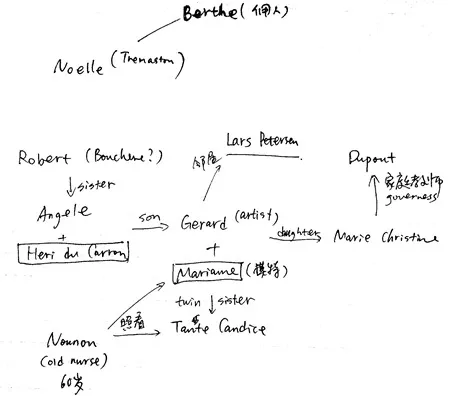 Berthe (佣人)
Noelle (Tremaston)
Lars Petersen
Robert (Bouchere?)
Dupont
sister
家庭教师
governess
Angele
son
Gerard (artist)
daughter
Marie Christine
+
+
Heri du Carron
Mariame (模特)
twin sister
照看
Tante Candice
Nounon
(old nurse)
60岁